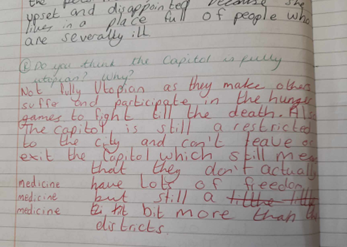 upset and disappointed because she
lives in a place full of people who
are severally ill
Do you think the Capitol is fully
utopian? Why?
Not fully Utopian as they make others
suffer and participate in the hunger
games to fight till the death. Also
The capitol is still a restricted
to the city and can't leave or
exit the Capitol which still mea
that they don't actually
medicine have lots of freedom
medicine but still a little
medicine bit more than the
districts.